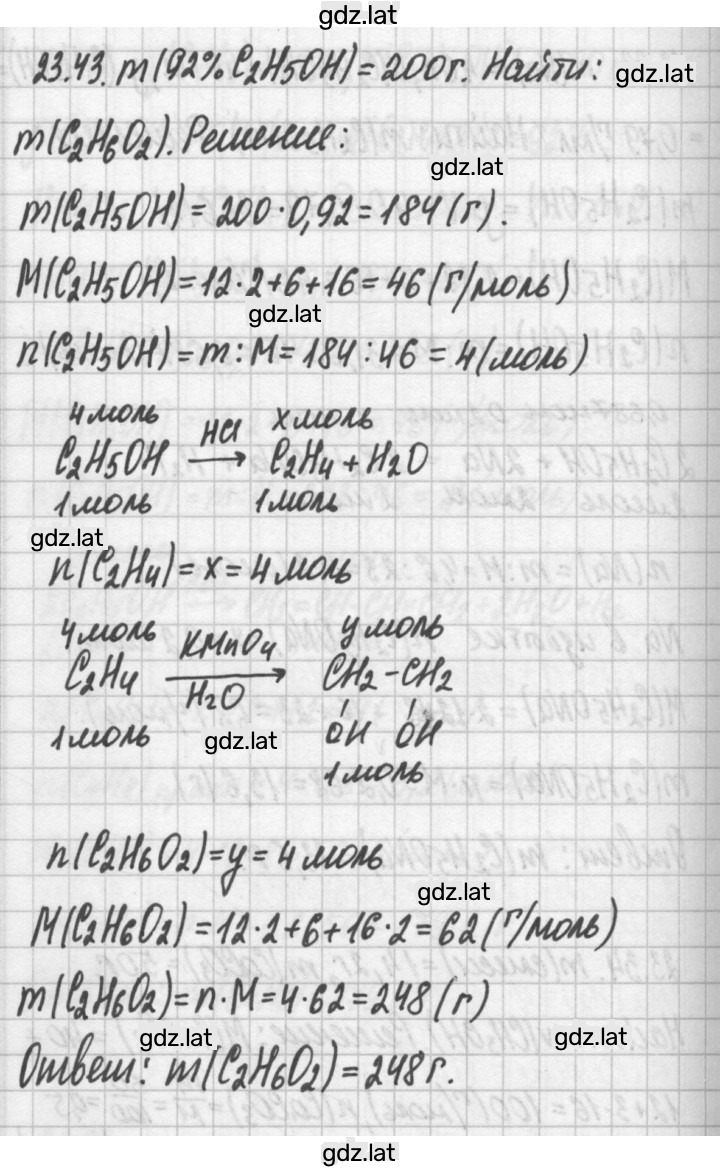 gdz.lat
23.43. m(92% C2H5OH) = 200г. Найти:
gdz.lat
m(C2H6O2). Решение:
gdz.lat
m(C2H5OH) = 200·0,92 = 184(г).
M(C2H5OH) = 12·2+6+16 = 46(г/моль)
gdz.lat
n(C2H5OH) = m:M = 184:46 = 4(моль)
4 моль x моль
C2H5OH HCl → C2H4 + H2O
1 моль 1 моль
gdz.lat
n(C2H4) = x = 4 моль
4 моль y моль
C2H4 KMnO4 → H2O CH2-CH2
1 моль gdz.lat OH OH
1 моль
n(C2H6O2) = y = 4 моль
gdz.lat
M(C2H6O2) = 12·2+6+16·2 = 62(г/моль)
m(C2H6O2) = n·M = 4·62 = 248(г)
gdz.lat gdz.lat
Ответ: m(C2H6O2) = 248г.
gdz.lat